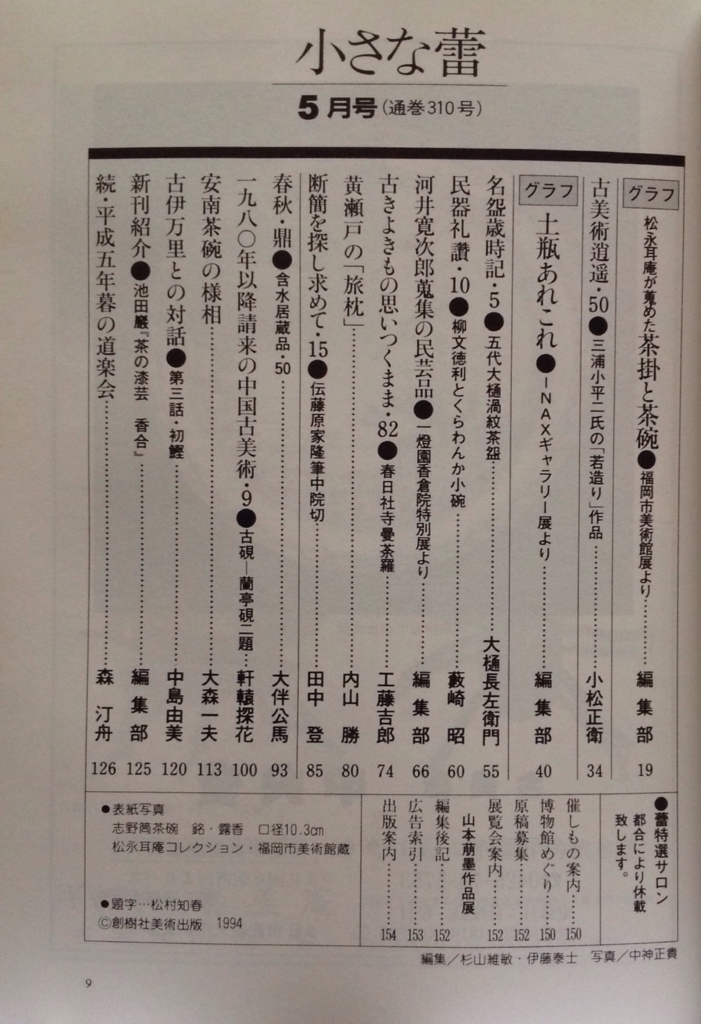 小さな蕾
5月号(通巻310号)
グラフ 松永耳庵が蒐めた茶掛と茶碗●福岡市美術館展より………編集部 19
古美術逍遥・50●三浦小平二氏の「若造り」作品………小松正衛 34
グラフ 土瓶あれこれ●INAXギャラリー展より………編集部 40
名盌歳時記・5●五代大樋渦紋茶盌………大樋長左衛門 55
民器礼讃・10●柳文徳利とくらわんか小碗………藪崎 昭 60
河井寛次郎蒐集の民芸品●一燈園香倉院特別展より………編集部 66
古きよきもの思いつくまま・82●春日社寺曼荼羅………工藤吉郎 74
黄瀬戸の「旅枕」………内山 勝 80
断簡を探し求めて・15●伝藤原家隆筆中院切………田中 登 85
春秋・鼎●含水居蔵品・50………大伴公馬 93
一九八〇年以降請来の中国古美術・9●古硯―蘭亭硯二題…軒轅探花 100
安南茶碗の様相………大森一夫 113
古伊万里との対話●第三話・初鰹………中島由美 120
新刊紹介●池田巖『茶の漆芸 香合』………編集部 125
続・平成五年暮の道楽会………森 汀舟 126
●蕾特選サロン
都合により休載
致します。
催しもの案内………150
博物館めぐり………150
原稿募集………152
展覧会案内………152
山本萠墨作品展
編集後記………152
広告索引………153
出版案内………154
●表紙写真
志野筒茶碗 銘・露香 口径10.3cm
松永耳庵コレクション・福岡市美術館蔵
●題字…松村知春
©創樹社美術出版 1994
編集/杉山維敏・伊藤泰士 写真/中神正貴
9